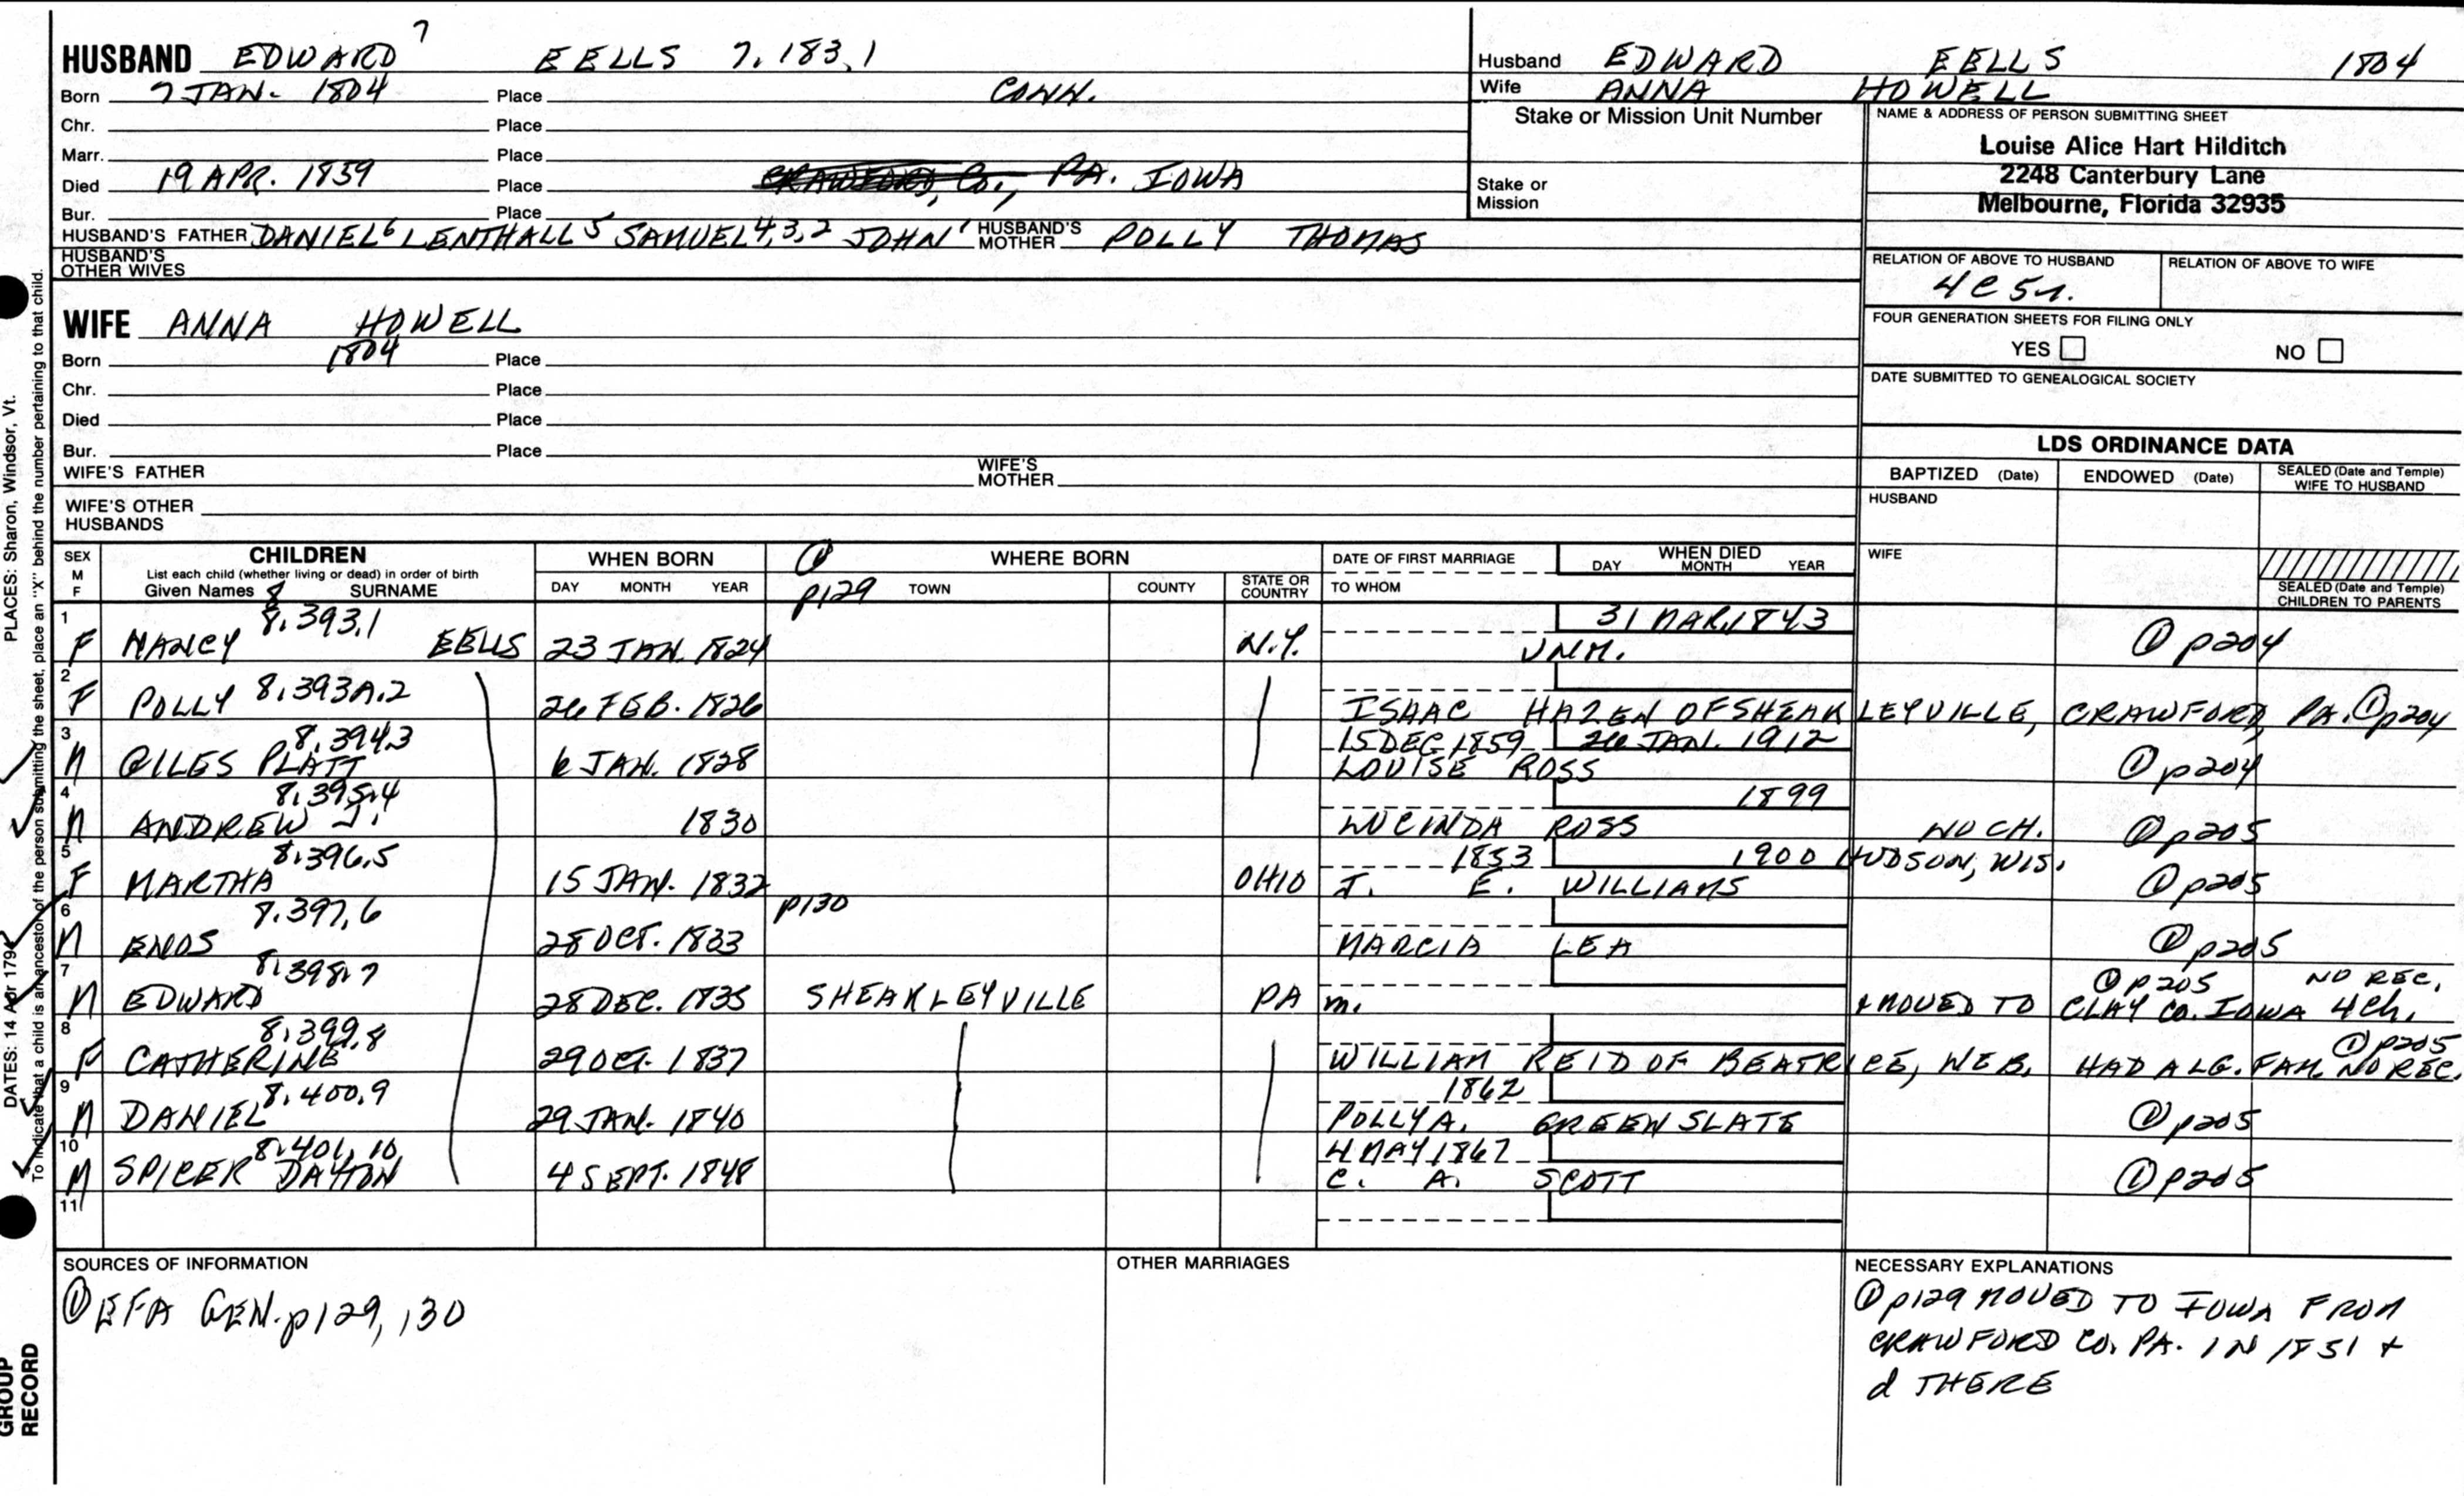 HUSBAND EDWARD 7 EELLS 7.183.1
Born 7 JAN. 1804 Place CONN.
Chr. Place
Marr. Place
Died 19 APR. 1859 Place CRAWFORD, Co., PA. IOWA
Bur. Place
HUSBAND'S FATHER DANIEL6 LENTHALL5 SAMUEL4,3,2 JOHN1 HUSBAND'S MOTHER POLLY THOMAS
HUSBAND'S OTHER WIVES
Husband EDWARD EELLS 1804
Wife ANNA HOWELL
Stake or Mission Unit Number
Stake or Mission
NAME & ADDRESS OF PERSON SUBMITTING SHEET
Louise Alice Hart Hilditch
2248 Canterbury Lane
Melbourne, Florida 32935
RELATION OF ABOVE TO HUSBAND RELATION OF ABOVE TO WIFE
4C5r.
FOUR GENERATION SHEETS FOR FILING ONLY
YES NO
DATE SUBMITTED TO GENEALOGICAL SOCIETY
WIFE ANNA HOWELL
Born 1804 Place
Chr. Place
Died Place
Bur. Place
WIFE'S FATHER WIFE'S MOTHER
WIFE'S OTHER HUSBANDS
LDS ORDINANCE DATA
BAPTIZED (Date) ENDOWED (Date) SEALED (Date and Temple) WIFE TO HUSBAND
HUSBAND
WIFE
SEALED (Date and Temple) CHILDREN TO PARENTS
SEX M F
CHILDREN
List each child (whether living or dead) in order of birth
Given Names 8 SURNAME
WHEN BORN
DAY MONTH YEAR
① p129
WHERE BORN
TOWN COUNTY STATE OR COUNTRY
DATE OF FIRST MARRIAGE
TO WHOM
WHEN DIED
DAY MONTH YEAR
1 F NANCY 8.393.1 EELLS 23 JAN. 1824 N.Y. UNM. 31 MAR. 1843 ① p204
2 F POLLY 8.393A.2 26 FEB. 1826 ISAAC HAZEN OF SHEAKLEYVILLE, CRAWFORD, PA. ① p204
3 M GILES PLATT 8.394.3 6 JAN. 1828 15 DEC 1859 26 JAN. 1912 LOUISE ROSS ① p204
4 M ANDREW J. 8.395.4 1830 1899 LUCINDA ROSS NO CH. ① p205
5 F MARTHA 8.396.5 15 JAN. 1832 OHIO 1853 1900 HUDSON, WIS. J. E. WILLIAMS ① p205
p130
6 M ENOS 8.397.6 28 OCT. 1833 MARCIA LEA ① p205
7 M EDWARD 8.398.7 28 DEC. 1835 SHEAKLEYVILLE PA m. + MOVED TO CLAY CO. IOWA 4 Ch. ① p205 NO REC.
8 F CATHERINE 8.399.8 29 OCT. 1837 WILLIAM REID OF BEATRICE, NEB. HAD A LG. FAM. NO REC. ① p205
9 M DANIEL 8.400.9 29 JAN. 1840 1862 POLLY A. GREENSLATE ① p205
10 M SPICER DAYTON 8.401.10 4 SEPT. 1848 4 MAY 1867 C. A. SCOTT ① p205
11
SOURCES OF INFORMATION
① EFA GEN. p129, 130
OTHER MARRIAGES
NECESSARY EXPLANATIONS
① p129 MOVED TO IOWA FROM
CRAWFORD CO. PA. IN 1851 +
d THERE
PLACES: Sharon, Windsor, Vt.
DATES: 14 Apr 1794
To indicate that a child is an ancestor of the person submitting the sheet, place an "X" behind the number pertaining to that child.
GROUP
RECORD